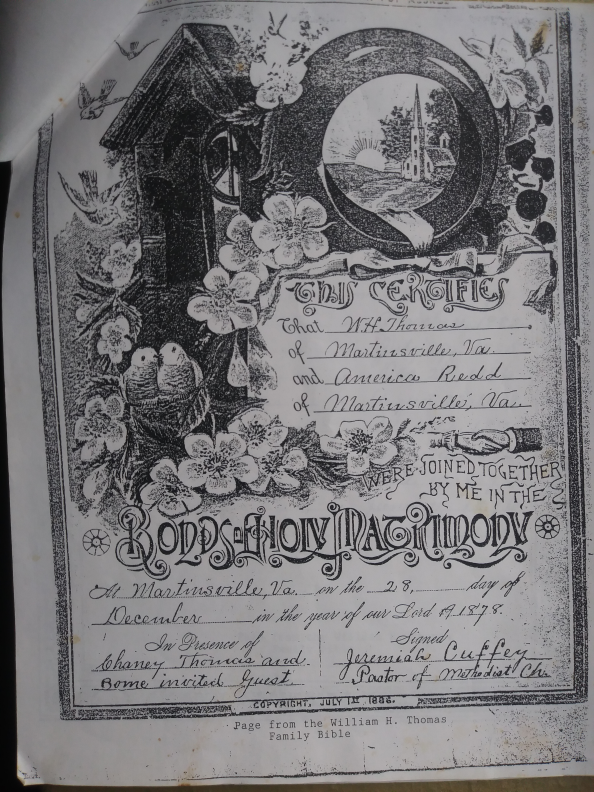 THIS CERTIFIES
That W.H. Thomas
of Martinsville, Va.
and America Redd
of Martinsville, Va.
WERE JOINED TOGETHER
BY ME IN THE
BONDS OF HOLY MATRIMONY
At Martinsville, Va. on the 28, day of
December in the year of our Lord 1878.
In Presence of
Chaney Thomas and
Some invited Guest
Signed
Jeremiah Cuffey
Pastor of Methodist Ch.
COPYRIGHT, JULY 1ST 1886.
Page from the William H. Thomas
Family Bible